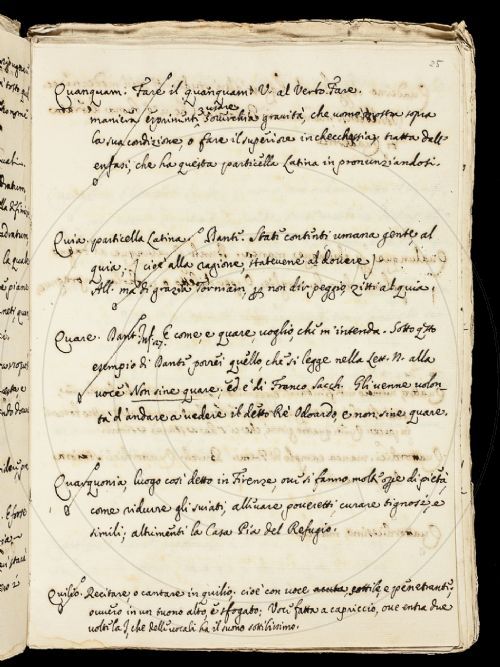 25
Quanquam. Fare il quanquam V. al Verbo Fare.
maniera esprimente soverchia gravità, che uomo mostra sopra
la sua condizione, o fare il superiore in checchessia, tratta dall'
enfasi, che ha questa particella Latina in pronunziandosi.
Quia. particella Latina. Dante. State contenti umana gente al
quia. (cioè alla cagione, statevene al dovere)
All. ma di grazia torniam, per non dir peggio, zitti al quia.
Quare. Dant. Inf. 27. E come, e quare, voglio, che m'intenda. Sotto qsto
esempio di Dante porrei quello, che si legge nella Lett. N. alla
voce Non sine quare, ed è di Franco Sacch. Gli venne volon
tà d'andare a vedere il detto Re Odoardo, e non sine quare.
Quarquonia, luogo così detto in Firenze, ove si fanno molte opre di pietà,
come ridurre gli sviati, allevare poveretti curare tignosi, e
simili; altrimenti la Casa Pia del Refugio.
Quilio. Recitare o cantare in quilio; cioè con voce acuta, sottile e penetrante;
ovvero in un tuono alto, e sfogato; Voce fatta a capriccio, ove entra due
volte la I che delle vocali ha il suono sottilissimo.